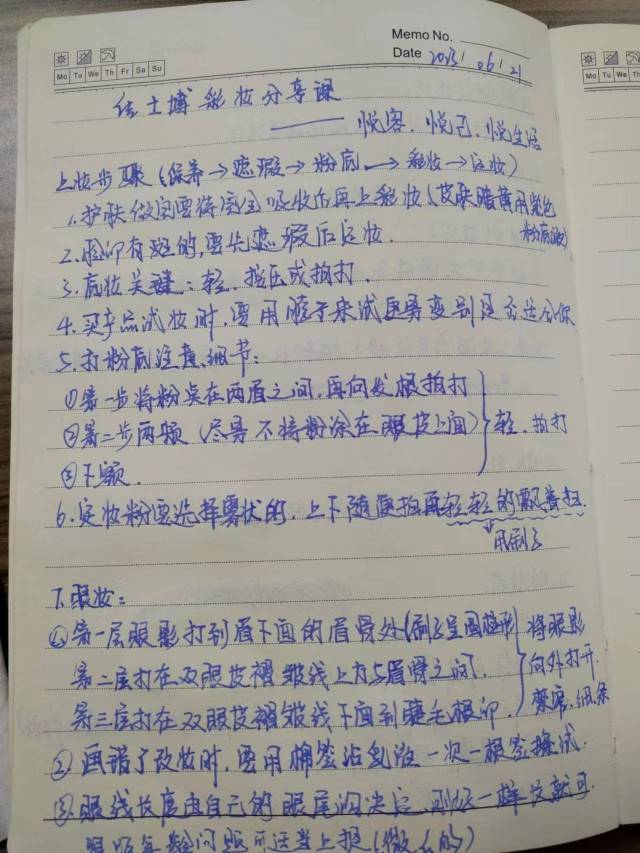 Memo No.
Date 2013/ 06/ 21
Mo Tu We Th Fr Sa Su
Mo Tu We Th
佳士博彩妆分享课
—— 悦容、悦己、悦生活
上妆步骤（保养→遮瑕→粉底→彩妆→定妆）
1.护肤做完要待完全吸收后再上彩妆（皮肤暗黄用紫色
粉底液）
2.脸部有斑的，要先遮瑕后定妆.
3.底妆关键：轻、按压或拍打.
4.买产品试妆时，要用脖子来试
是否适合你
5.打粉底注意细节：
①第一步将粉点在两眉之间，再向发根拍打
②第二步两颊（尽量不将粉涂在眼皮上面）
③下颚.
轻、拍打
6.定妆粉要选择雾状的，上下随便拍再轻轻的飘着扫.
用刷子
7.眼妆：
①第一层眼影打到眉下面的眉骨处（刷子呈圆弧形
第二层打在双眼皮褶皱线上方与眉骨之间.
第三层打在双眼皮褶皱线下面到睫毛根部.
将眼影
向外打开.
②画错了改妆时，要用棉签沾乳液一次一根签擦试.
③眼线长度由自己的眼尾沟决定，刚好一样长就可.